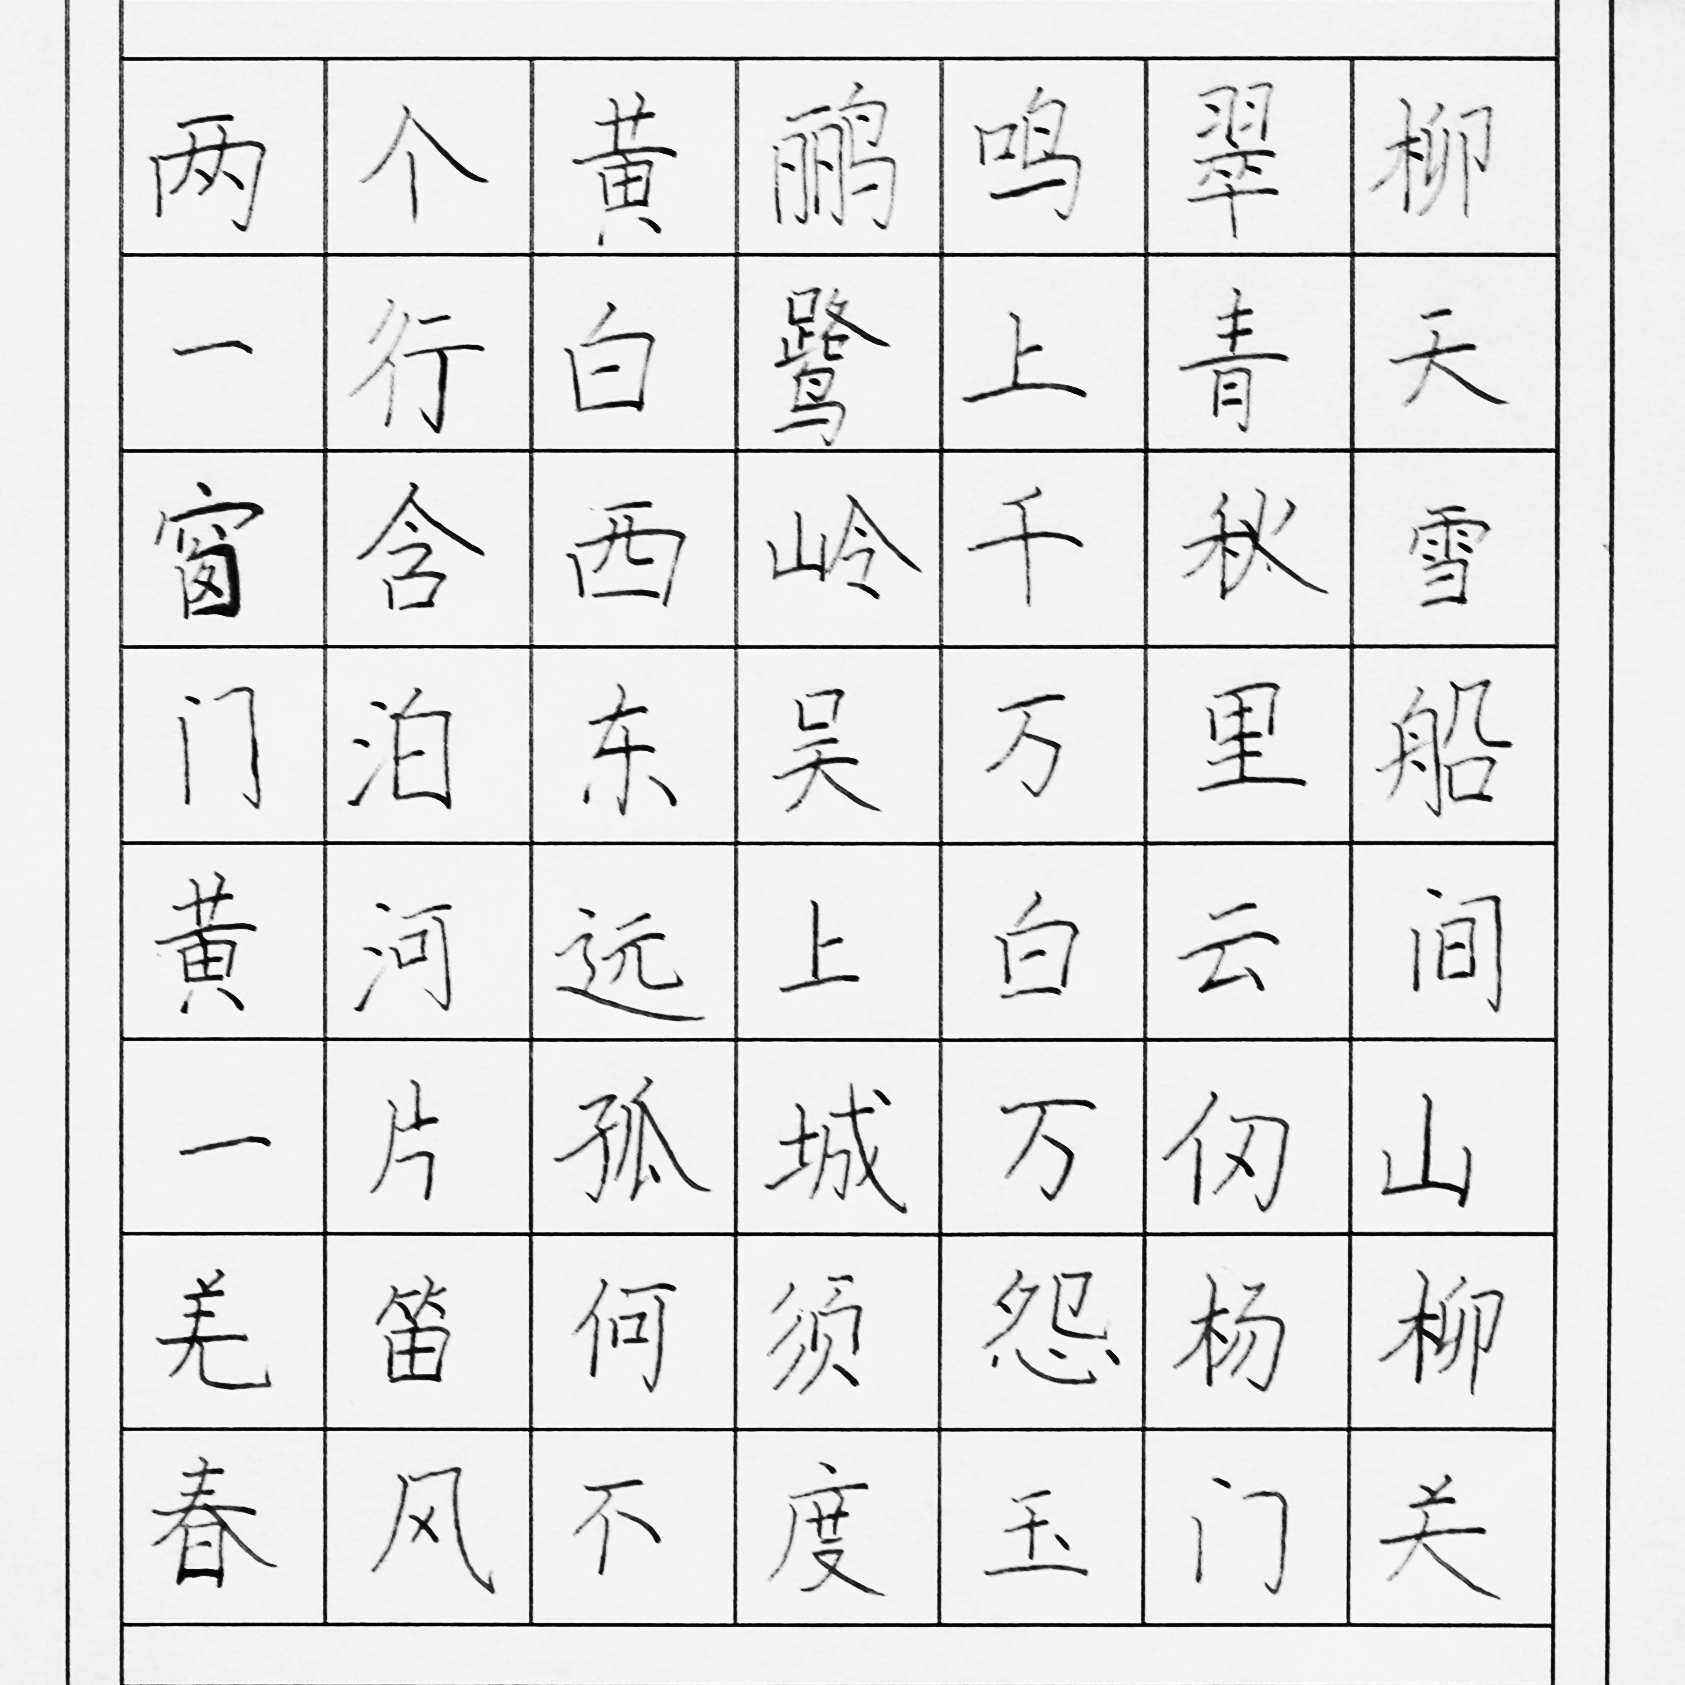 两个黄鹂鸣翠柳
一行白鹭上青天
窗含西岭千秋雪
门泊东吴万里船
黄河远上白云间
一片孤城万仞山
羌笛何须怨杨柳
春风不度玉门关